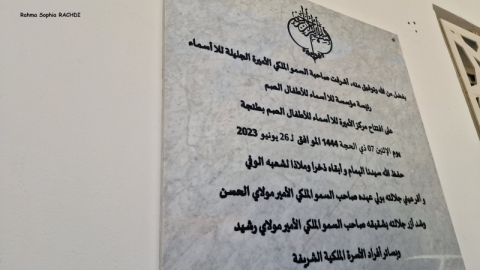 Rahma Sophia RACHDI
بفضل من الله وبتوفيق منه، أشرفت صاحبة السمو الملكي الأميرة الجليلة للا أسماء
رئيسة مؤسسة للا أسماء للأطفال الصم
على افتتاح مركز الأميرة للا أسماء للأطفال الصم بطنجة
يوم الإثنين 07 ذي الحجة 1444 الموافق لـ 26 يونيو 2023
حفظ الله سيدنا الهمام وأبقاه ذخرا وملاذا لشعبه الوفي
وأقر عيني جلالته بولي عهده صاحب السمو الملكي الأمير مولاي الحسن
وشد أزر جلالته بشقيقه صاحب السمو الملكي الأمير مولاي رشيد
وبسائر أفراد الأسرة الملكية الشريفة